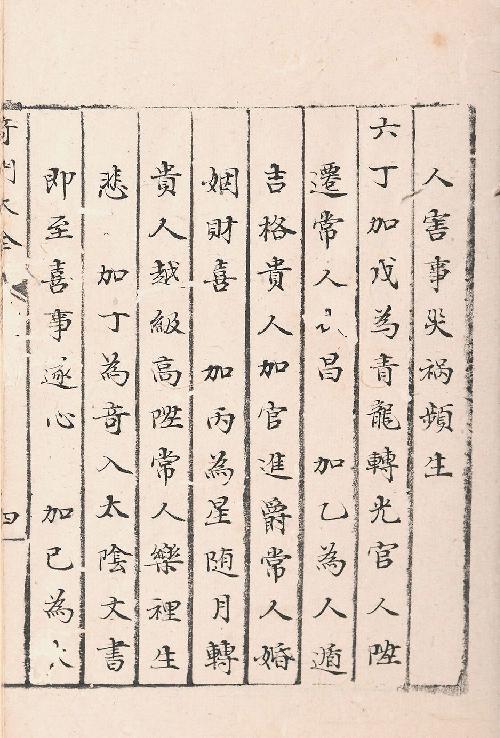 人害事災禍頻生
六丁加戊為青龍轉光官人陞
遷常人昌 加乙為人遁
吉格貴人加官進爵常人婚
姻財喜 加丙為星随月轉
貴人越級高陞常人樂裡生
悲 加丁為竒入太陰文書
即至喜事遂心 加己為火
四